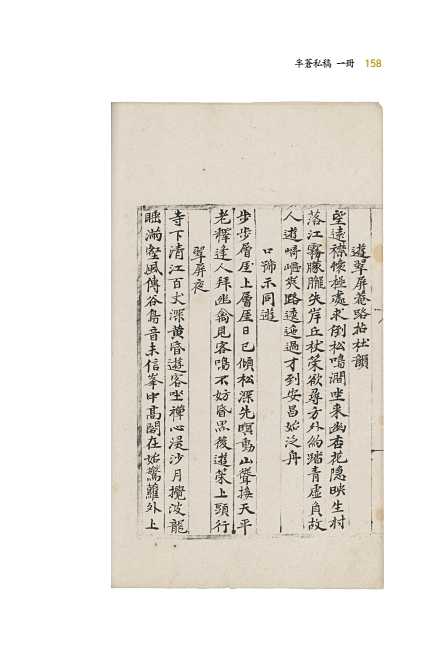 半蒼私稿 一冊 158
遊翠屏菴路拈杜韻
望遠襟懷極處求倒松鳴澗坐來幽杏花隱映生村
落江霧朦朧失岸丘杖策欲尋方外約踏青虛負故
人遊崎嶇峽路遠遙過才到安昌始泛舟
口號示同遊
步步層崖上層崖日已傾松深先暝動山聳換天平
老釋逢人拜幽禽見客鳴不妨昏黑後遊策上頭行
翠屏夜
寺下清江百丈深黃昏遊客坐禪心漫沙月攪波龍
睡滿壑風傳谷鳥音未信峯中高閣在始驚蘿外上